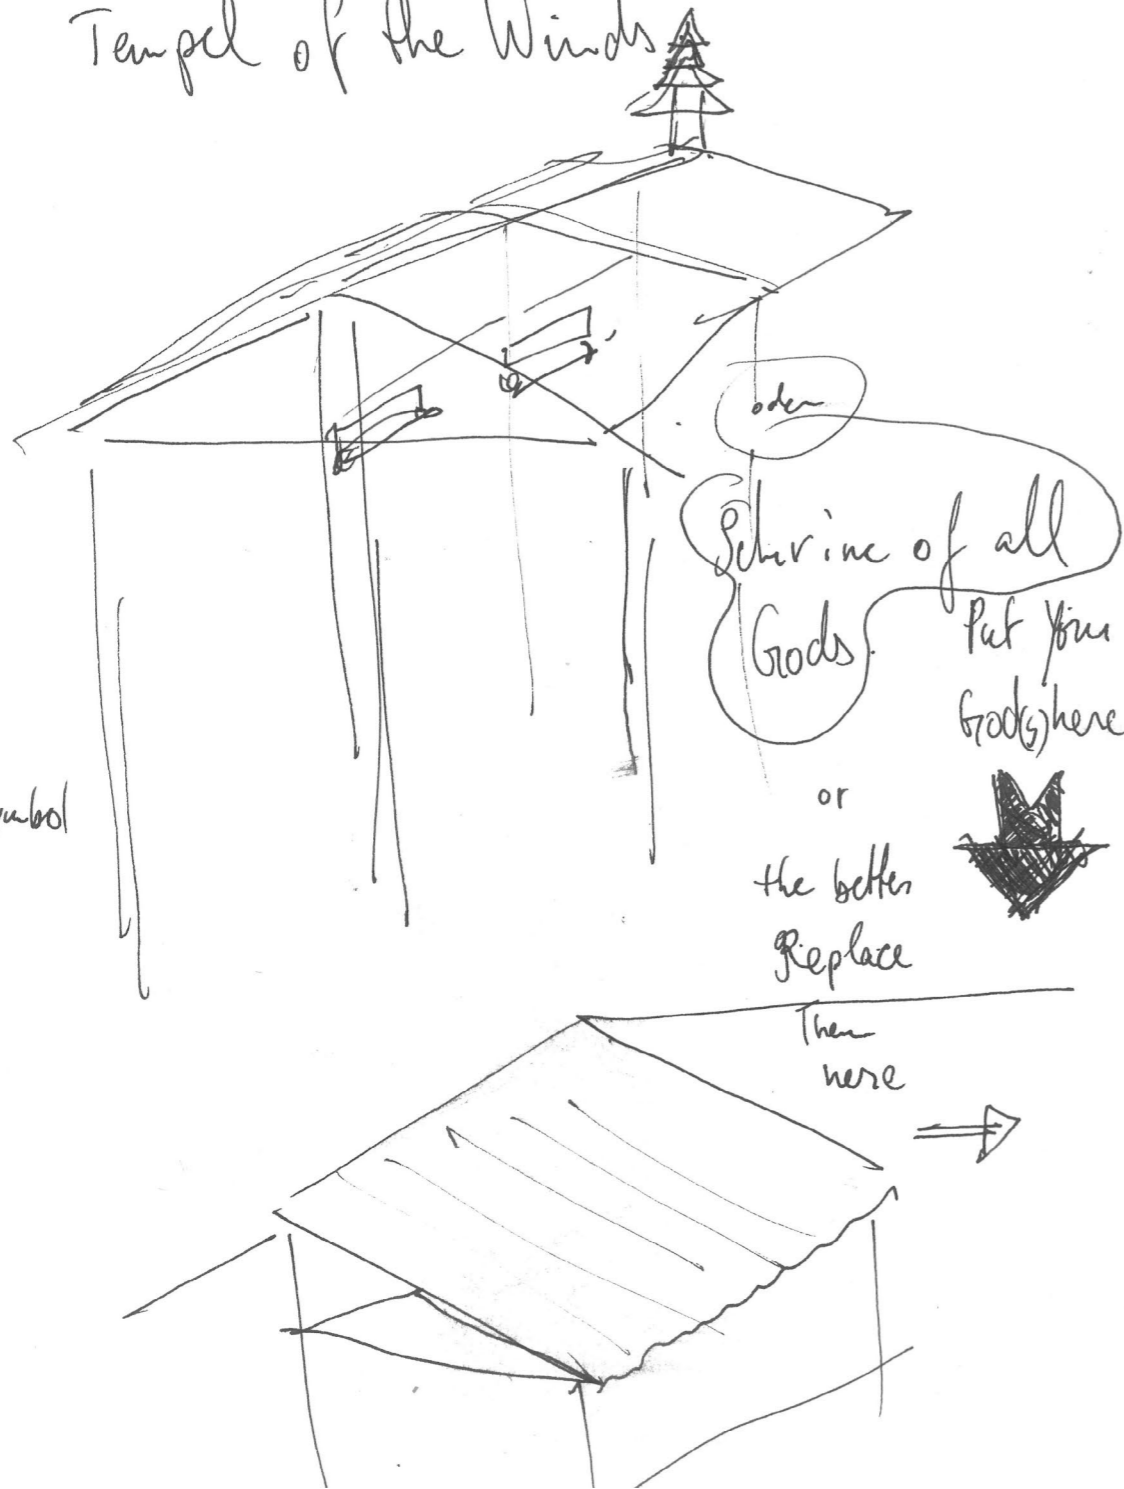 Tempel of the Winds
oder
Schrine of all
Gods
Put Your
God(s) here
or
the better
Replace
Them
here